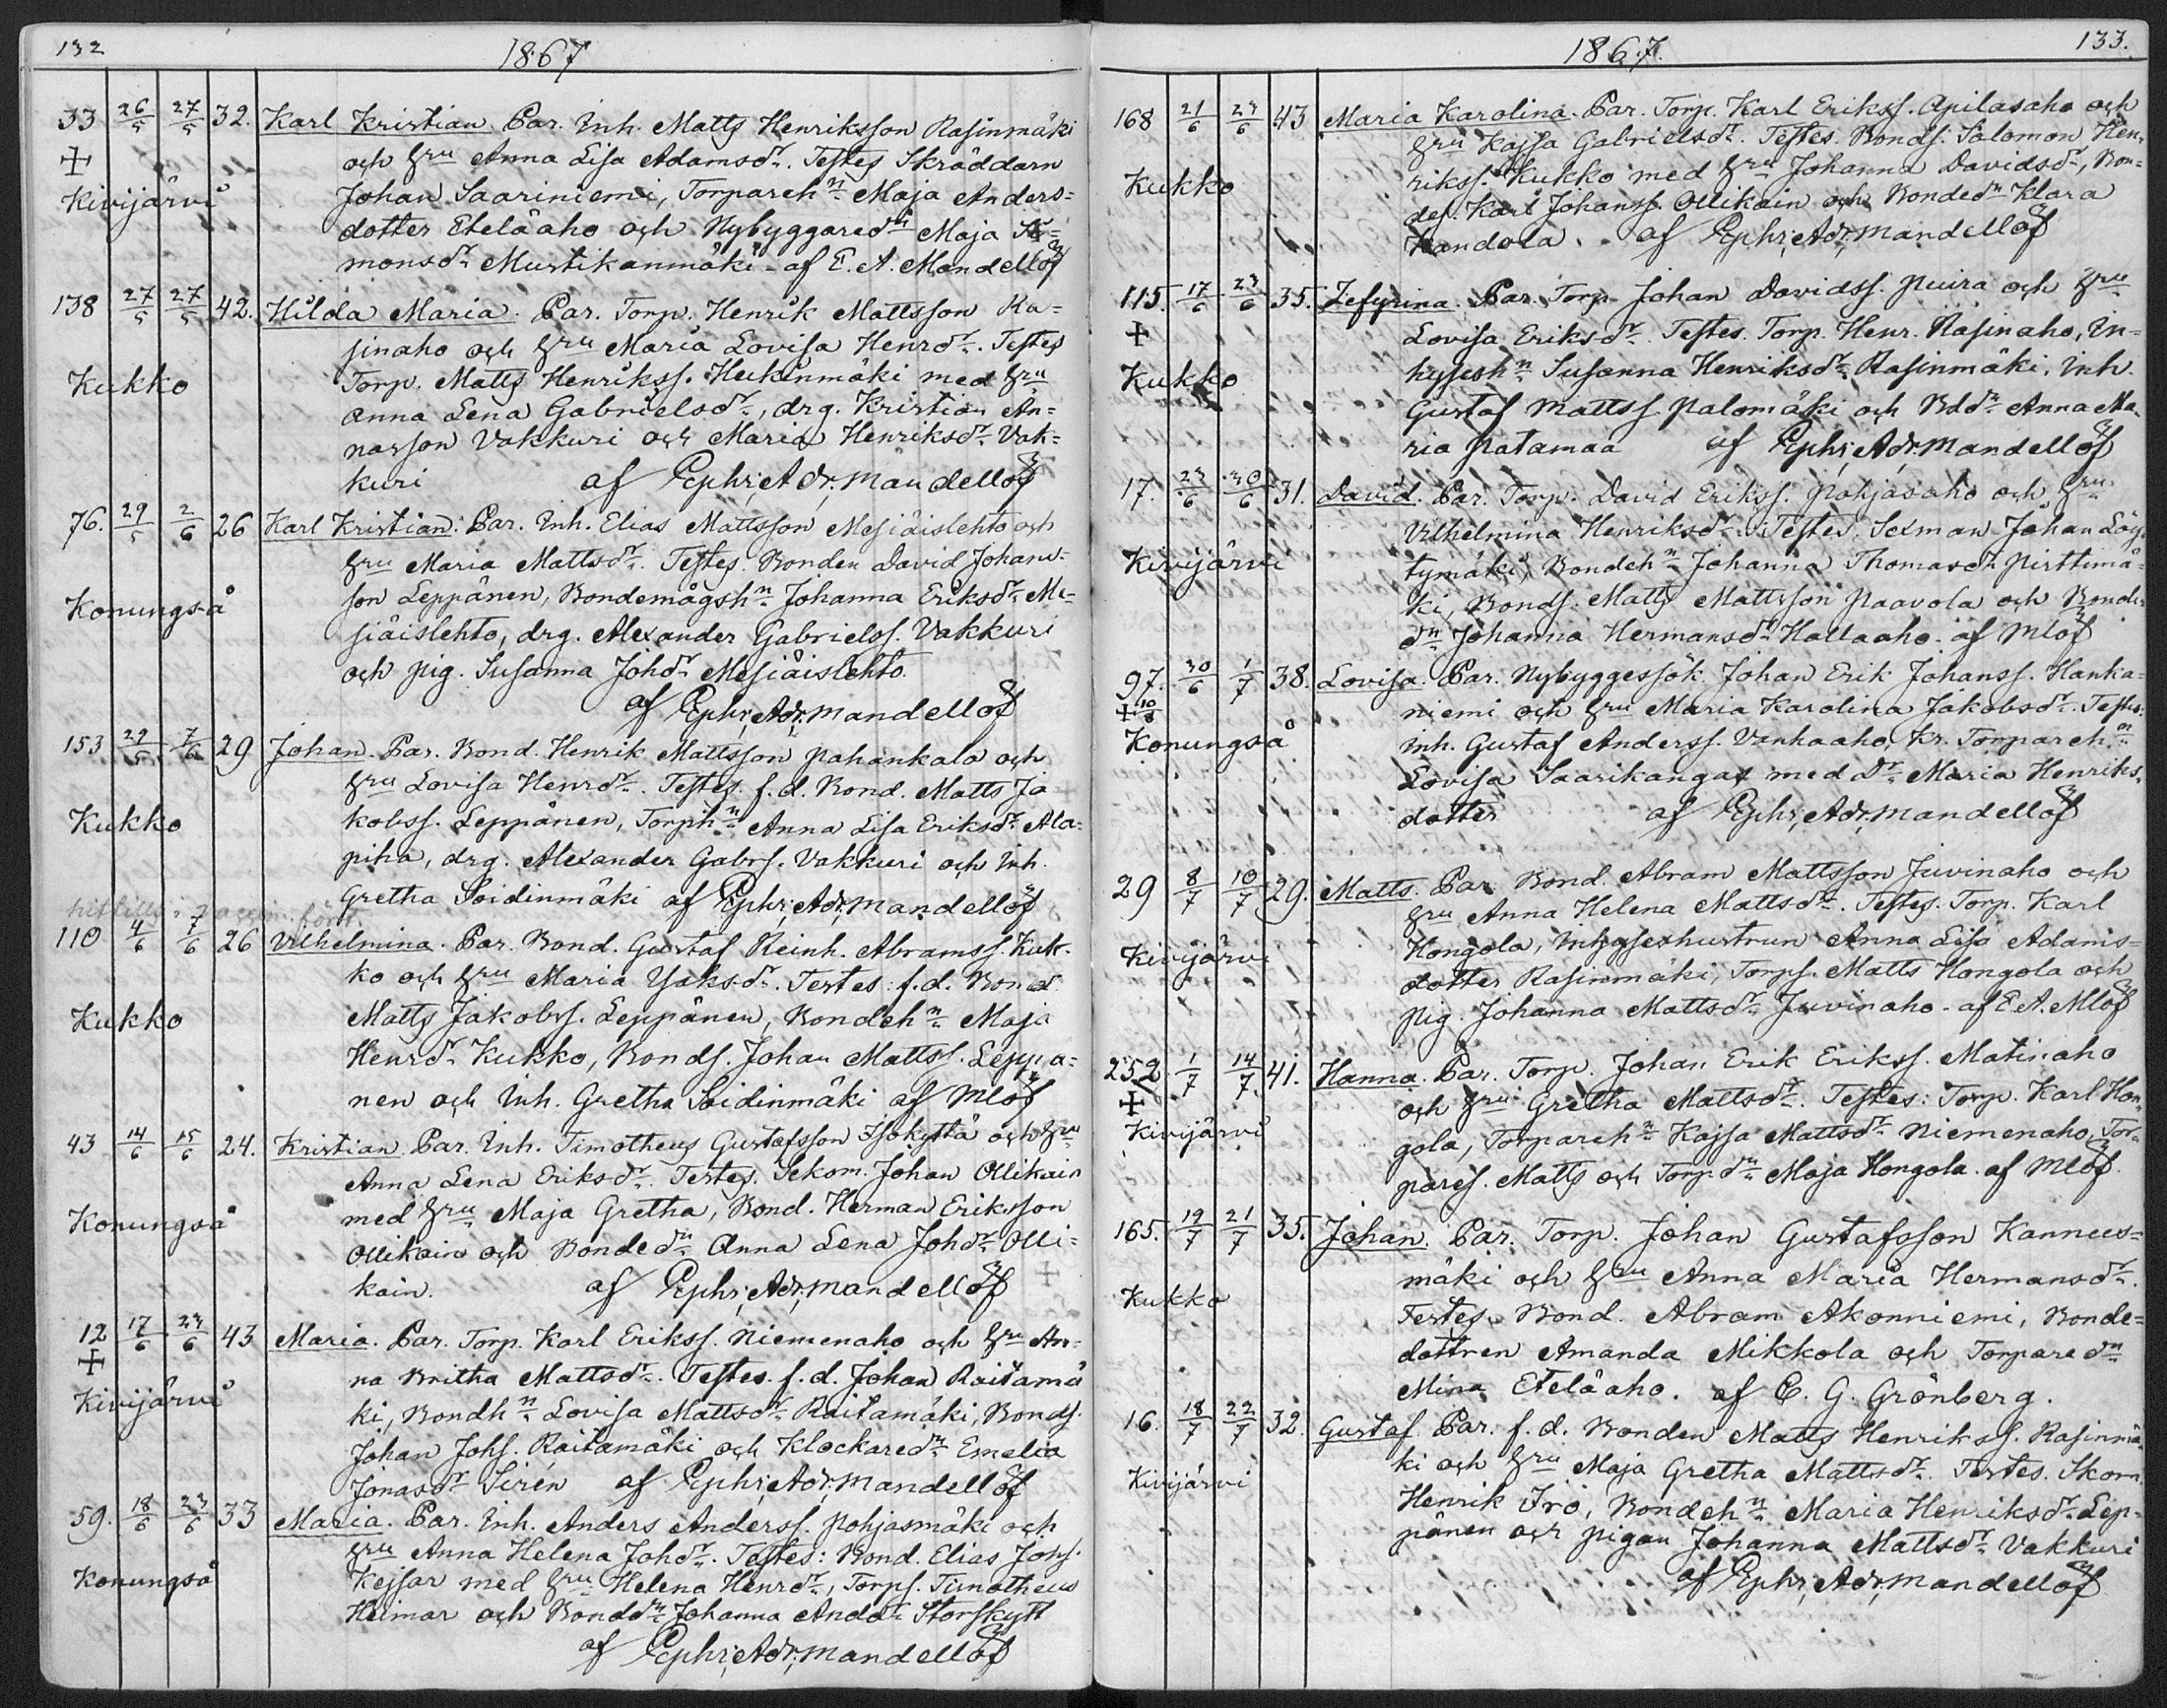 132
1867
33 26/5 27/5 32. Karl Kristian. Par. Inh. Matts Henriksson Rasinmäki
och hru Anna Lisa Adamsdr. Testes Skräddarn
Kivijärvi Johan Saariniemi, Torpareh:n Maja Anders=
dotter Eteläaho och Nybyggaredn Maja Si=
monsdr Mustikanmäki - af E. A. Mandellöf
138 27/5 27/5 42. Hilda Maria. Par. Torp. Henrik Mattsson Ra=
sinaho och hru Maria Lovisa Henrdr. Testes
Kukko Torp. Matts Henrikss. Heikinmäki med hru
Anna Lena Gabrielsdr, drg. Kristian An=
narsson Vakkuri och Maria Henriksdr Vak=
kuri af Ephr. Adr. Mandellöf
76. 29/5 2/6 26 Karl Kristian. Par. Inh. Elias Mattsson Mesiäislehto och
hru Maria Mattsdr. Testes. Bonden David Johans=
Konungså son Leppänen, Bondemågsh:n Johanna Eriksdr Me=
siäislehto, drg. Alexander Gabrielss. Vakkuri
och pig. Susanna Johdr Mesiäislehto.
af Ephr. Adr. Mandellöf
153 29/5 7/6 29 Johan. Par. Bond. Henrik Mattsson Pahankala och
hru Lovisa Henrdr. Testes. f. d. Bond. Matts Ja
Kukko kobss. Leppänen, Torph:n Anna Lisa Eriksdr Ala=
piha, drg. Alexander Gabrs. Vakkuri och Inh.
Gretha Soidinmäki af Ephr. Adr. Mandellöf
110 4/6 7/6 26 Vilhelmina. Par. Bond. Gustaf Reinh. Abramss. Kuk=
ko och hru Maria Isaksdr. Testes: f. d. Bond
Kukko Matts Jakobss. Leppänen, Bondeh:n Maja
Henrdr Kukko, Bonds. Johan Mattss. Leppä=
nen och Inh. Gretha Soidinmäki af Mlöf
43 14/6 15/6 24. Kristian. Par. Inh. Timotheus Gustafsson Isokyttä och hru
Anna Lena Eriksdr. Testes. Sekom. Johan Ollikain
Konungså med hru Maja Gretha, Bond. Herman Eriksson
Ollikain och Bondedn Anna Lena Johdr Olli=
kain. af Ephr. Adr. Mandellöf
12 17/6 23/6 43 Maria. Par. Torp. Karl Erikss. Niemenaho och hru An=
na Britha Mattsdr. Testes. f. d. Johan Raitamä
Kivijärvi ki, Bondh:n Lovisa Mattsdr Raitamäki, Bonds.
Johan Johs. Raitamäki och Klockaredn Emelia
Jonasdr Sirén af Ephr. Adr. Mandellöf
59. 18/6 23/6 33 Maria. Par. Inh. Anders Anderss. Pohjasmäki och
hru Anna Helena Johdr. Testes: Bond. Elias Johs.
Konungså Keisar med hru Helena Henrdr, Torps. Timotheus
Heimar och Bonddn Johanna Anddr Storskytt
af Ephr. Adr. Mandellöf
1867.
133.
168 21/6 23/6 43 Maria Karolina. Par. Torp. Karl Erikss. Apilasaho och
hru Kajsa Gabrielsdr. Testes. Bonds. Salomon Hen=
Kukko rikss. Kukko med hru Johanna Davidsdr, Bon=
des. Karl Johanss. Ollikain och Bondedn Klara
Kandola. af Ephr. Adr. Mandellöf
115. 17/6 23/6 35. Zefyrina. Par. Torp. Johan Davidss. Puira och hru
Lovisa Eriksdr. Testes. Torp. Henr. Rasinaho, In=
Kukko hysesh:n Susanna Henriksdr Rasinmäki, Inh.
Gustaf Mattss. Palomäki och Bddn Anna Ma=
ria Patamaa af Ephr. Adr. Mandellöf
17. 23/6 30/6 31. David. Par. Torp. David Erikss. Pohjasaho och hru
Vilhelmina Henriksdr. Testes. Sexman Johan Löy=
Kivijärvi tymäki, Bondeh:n Johanna Thomasdr Pirttimä=
ki, Bonds. Matts Mattsson Paavola och Bonde=
dn Johanna Hermansdr Hallaaho. af Mlöf
97. 30/6 1/7 38. Lovisa. Par. Nybyggessök. Johan Erik Johanss. Hanka=
10/8 niemi och hru Maria Karolina Jakobsdr. Testes:
Konungså Inh. Gustaf Anderss. Vanhaaho, Kr. Torpareh:n
Lovisa Saarikangas med Dr Maria Henriks=
dotter af Ephr. Adr. Mandellöf
29 8/7 10/7 29. Matts. Par. Bond. Abram Mattsson Juvinaho och
hru Anna Helena Mattsdr. Testes. Torp. Karl
Kivijärvi Hongola, Inhyseshustrun Anna Lisa Adams=
dotter Rasinmäki, Torps. Matts Hongola och
pig. Johanna Mattsdr Juvinaho. af E. A. Mlöf
252 1/7 14/7 41. Hanna. Par. Torp. Johan Erik Erikss. Matinaho
och hru Gretha Mattsdr. Testes: Torp. Karl Hon=
Kivijärvi gola, Torpareh:n Kajsa Mattsdr Niemenaho, Tor=
pares. Matts och Torp.dn Maja Hongola. af Mlöf.
165. 19/7 21/7 35. Johan. Par. Torp. Johan Gustafsson Kannus=
mäki och hru Anna Maria Hermansdr.
Kukko Testes. Bond. Abram Akonniemi, Bonde=
dottren Amanda Mikkola och Torparedn
Mina Eteläaho. af C. G. Grönberg.
16. 18/7 22/7 32. Gustaf. Par. f. d. Bonden Matts Henrikss. Rasinmä=
ki och hru Maja Gretha Mattsdr. Testes. Skom.
Kivijärvi Henrik Iro, Bondeh:n Maria Henriksdr Lep=
pänen och pigan Johanna Mattsdr Vakkuri
af Ephr. Adr. Mandellöf